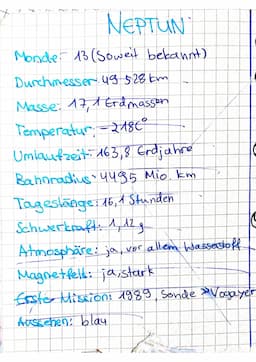 NEPTUN
Monde: 13 (Soweit bekannt)
Durchmesser: 49 528 km
Masse: 17,1 Erdmassen
Temperatur: -218C°
Umlaufzeit: 163,8 Erdjahre
Bahnradius: 4495 Mio. km
Tageslänge: 16,1 Stunden
Schwerkraft: 1,12g
Atmosphäre: ja, vor allem Wasserstoff
Magnetfelt: ja, stark
Erste Mission: 1989, Sonde »Vogayer
Aussehen: blau